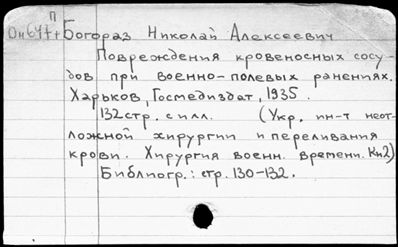 П
Он677т Богораз Николай Алексеевич
Повреждения кровеносных сосу
дов при военно-полевых ранениях.
Харьков, Госмедиздат, 1935.
132 стр. с илл. (Укр. ин-т неот-
ложной хирургии и переливания
крови. Хирургия военн. времени. Кн2)
Библиогр.: стр. 130-132.